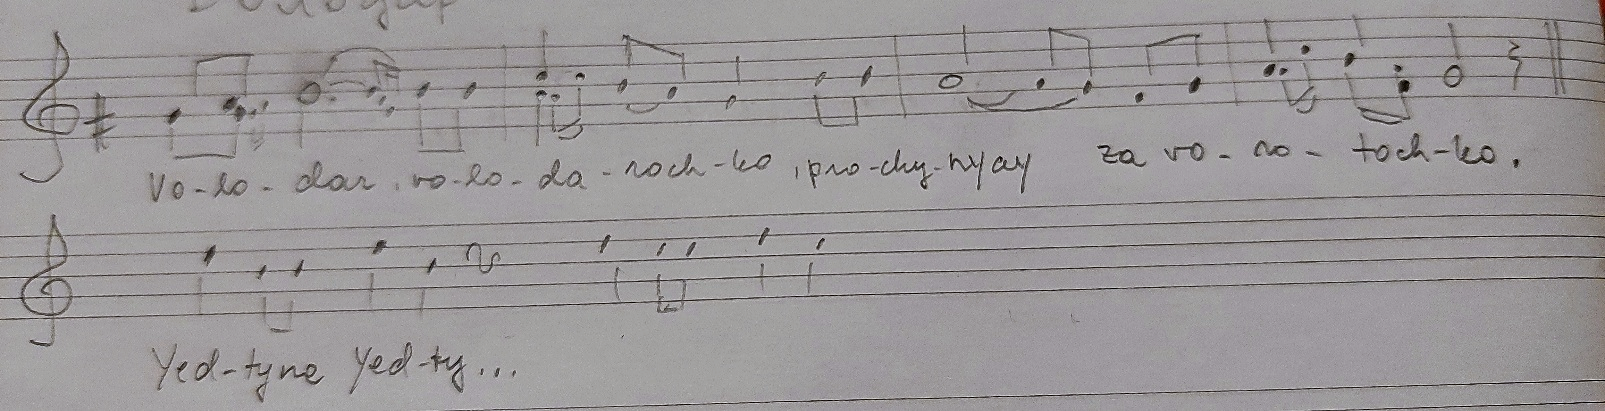 Vo-lo-dar, vo-lo-da-roch-ko, pro-chy-nyay za vo-ro-toch-ko.
Yed-tyne Yed-ty...